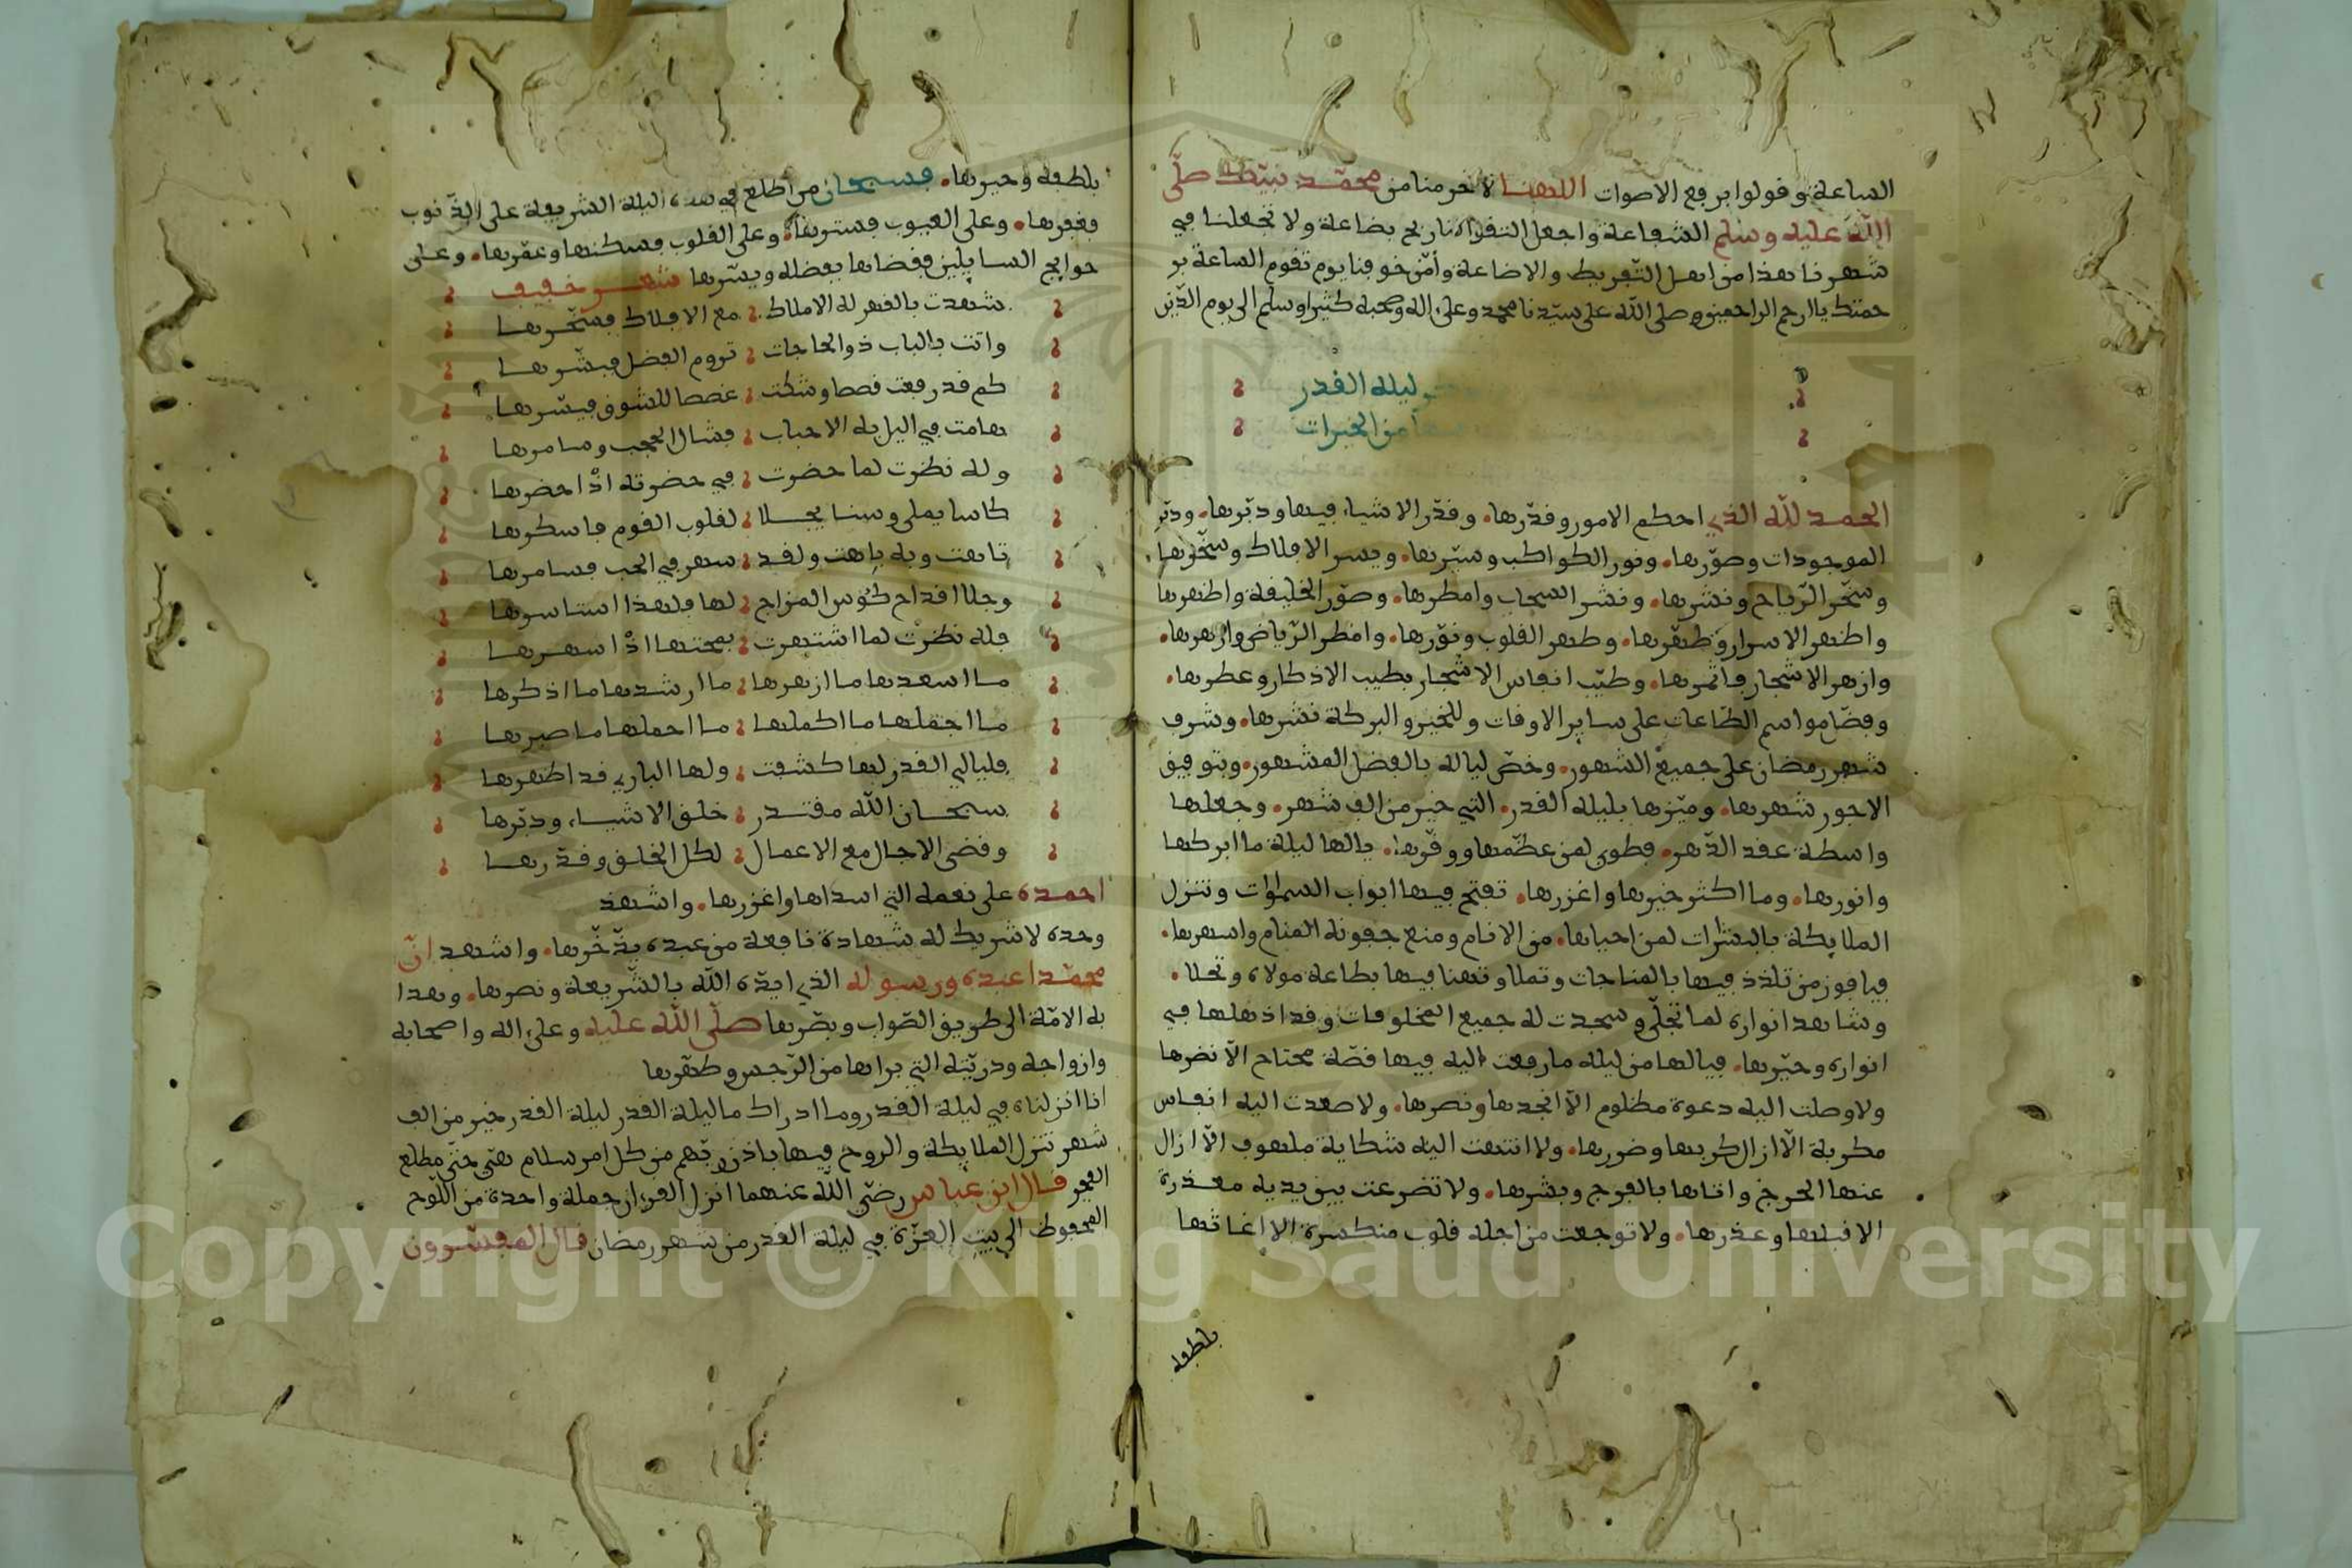 الساعة وقولوا برفع الاصوات اللهنا لا تحرمنا من محمد نبيك صلى
الله عليه وسلم الشفاعة واجعل التقوا لنا ربح بضاعة ولا تجعلنا في
شهرنا هذا من اهل التفريط والاضاعة وأمن خوفنا يوم تقوم الساعة بر
حمتك يا ارحم الراحمين وصلى الله على سيدنا محمد وعلى اله وصحبه كثيرا وسلم الى يوم الدين
ليله القدر
من الخيرات
الحمد لله الذي احكم الامور وقدرها. وقدر الاشياء فيها ودبرها. ودبر
الموجودات وصورها. ونور الكواكب وسيرها. ويسر الافلاك وسخرها
وسخر الرياح ونشرها. ونشر السحاب وامطرها. وصور الخليقة واظهرها
واظهر الاسرار وطهرها. وطهر القلوب ونورها. وامطر الرياض وازهرها.
وازهر الاشجار فاثمرها. وطيب انفاس الاشجار بطيب الاذكار وعطرها.
وفضل مواسم الطاعات على ساير الاوقات وللخير والبركة نشرها. وشرف
شهر رمضان على جميع الشهور. وخص لياله بالفضل المشهور. وبتوفيق
الاجور شهرها. وميزها بليله القدر. التي خير من الف شهر. وجعلها
واسطة عقد الدهر. فطوبى لمن عظمها ووقرها. يالها ليلة ما ابركها
وانورها. وما اكثر خيرها واغزرها. تفتح فيها ابواب السموات وتنزل
الملايكة بالبشرات لمن احياها. من الانام ومنع جفونه المنام واسهرها.
فيا فوز من تلذذ فيها بالمناجات وتملا وتهنا فيها بطاعة مولاه وتحلا.
وشاهد انواره لما تجلى وسجدت له جميع المخلوقات وقد اذهلها في
انواره وحيرها. فيالها من ليله ما رفعت اليه فيها قصة محتاج الا نضرها
ولا وصلت اليه دعوة مظلوم الا انجدها ونصرها. ولا صعدت اليه انفاس
مكربة الا ازال كربها وضررها. ولا انتهت اليه شكاية ملهوف الا ازال
عنها الحرج واتاها بالفرج وبشرها. ولا تضرعت بين يديه معذرة
الا قبلها وعذرها. ولا توجعت من اجله قلوب منكسرة الا اغاثها
بلطفه
بلطفه وجبرها. فسبحان من اطلع في هذه اليلة الشريفة على الذنوب
فغفرها. وعلى العيوب فسترها. وعلى القلوب فسكنها وعمرها. وعلى
حوايج السايلين فقضاها بفضله ويسرها شعر خفيف
شهدت بالقهر له الاملاك مع الافلاك فسخرها
واتت بالباب ذو الحاجات تروم الفضل فبشرها
كم قد رفعت قصصا وشكت غصصا للشوق فيسرها
هامت في اليل به الاحباب فشال الحجب وسامرها
وله نظرت لما حضرت في حضرته اذا حضرها
كاسا يملى وسنا يجلا لقلوب القوم فاسكرها
تاهت وبه باهت ولقد سهر في الحب فسامرها
وجلا اقداح كؤس المزاج لها ولهذا استاسرها
فله نظرت لما اشتهرت بمحبتها اذا اسهرها
ما اسعدها ما ازهرها ما ارشدها ما اذكرها
ما اجملها ما اكملها ما احملها ما صبرها
فليالي القدر لها كشفت ولها الباري قد اظهرها
سبحان الله مقتدر خلق الاشياء ودبرها
وقضى الاجال مع الاعمال لكل الخلق وقدرها
احمده على نعمه التي اسداها واغزرها. واشهد
وحده لا شريك له شهادة نافعة من عبده يدخرها. واشهد ان
محمدا عبده ورسوله الذي ايده الله بالشريعة ونصرها. وهدا
به الامة الى طريق الصواب وبصرها صلى الله عليه وعلى اله واصحابه
وازواجه وذريته التي براها من الرجس وطهرها
انا انزلناه في ليلة القدر وما ادراك ما ليلة القدر ليلة القدر خير من الف
شهر تنزل الملايكة والروح فيها باذن ربهم من كل امر سلام هي حتى مطلع
الفجر قال ابن عباس رضي الله عنهما انزل القرءان جملة واحدة من اللوح
المحفوظ الى بيت العزة في ليلة القدر من شهر رمضان قال المفسرون
Copyright © King Saud University